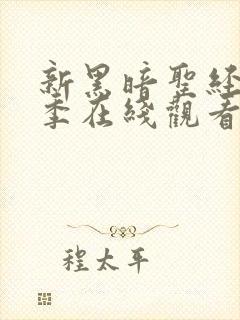 新黑暗聖經
季在綫觀看
程太平